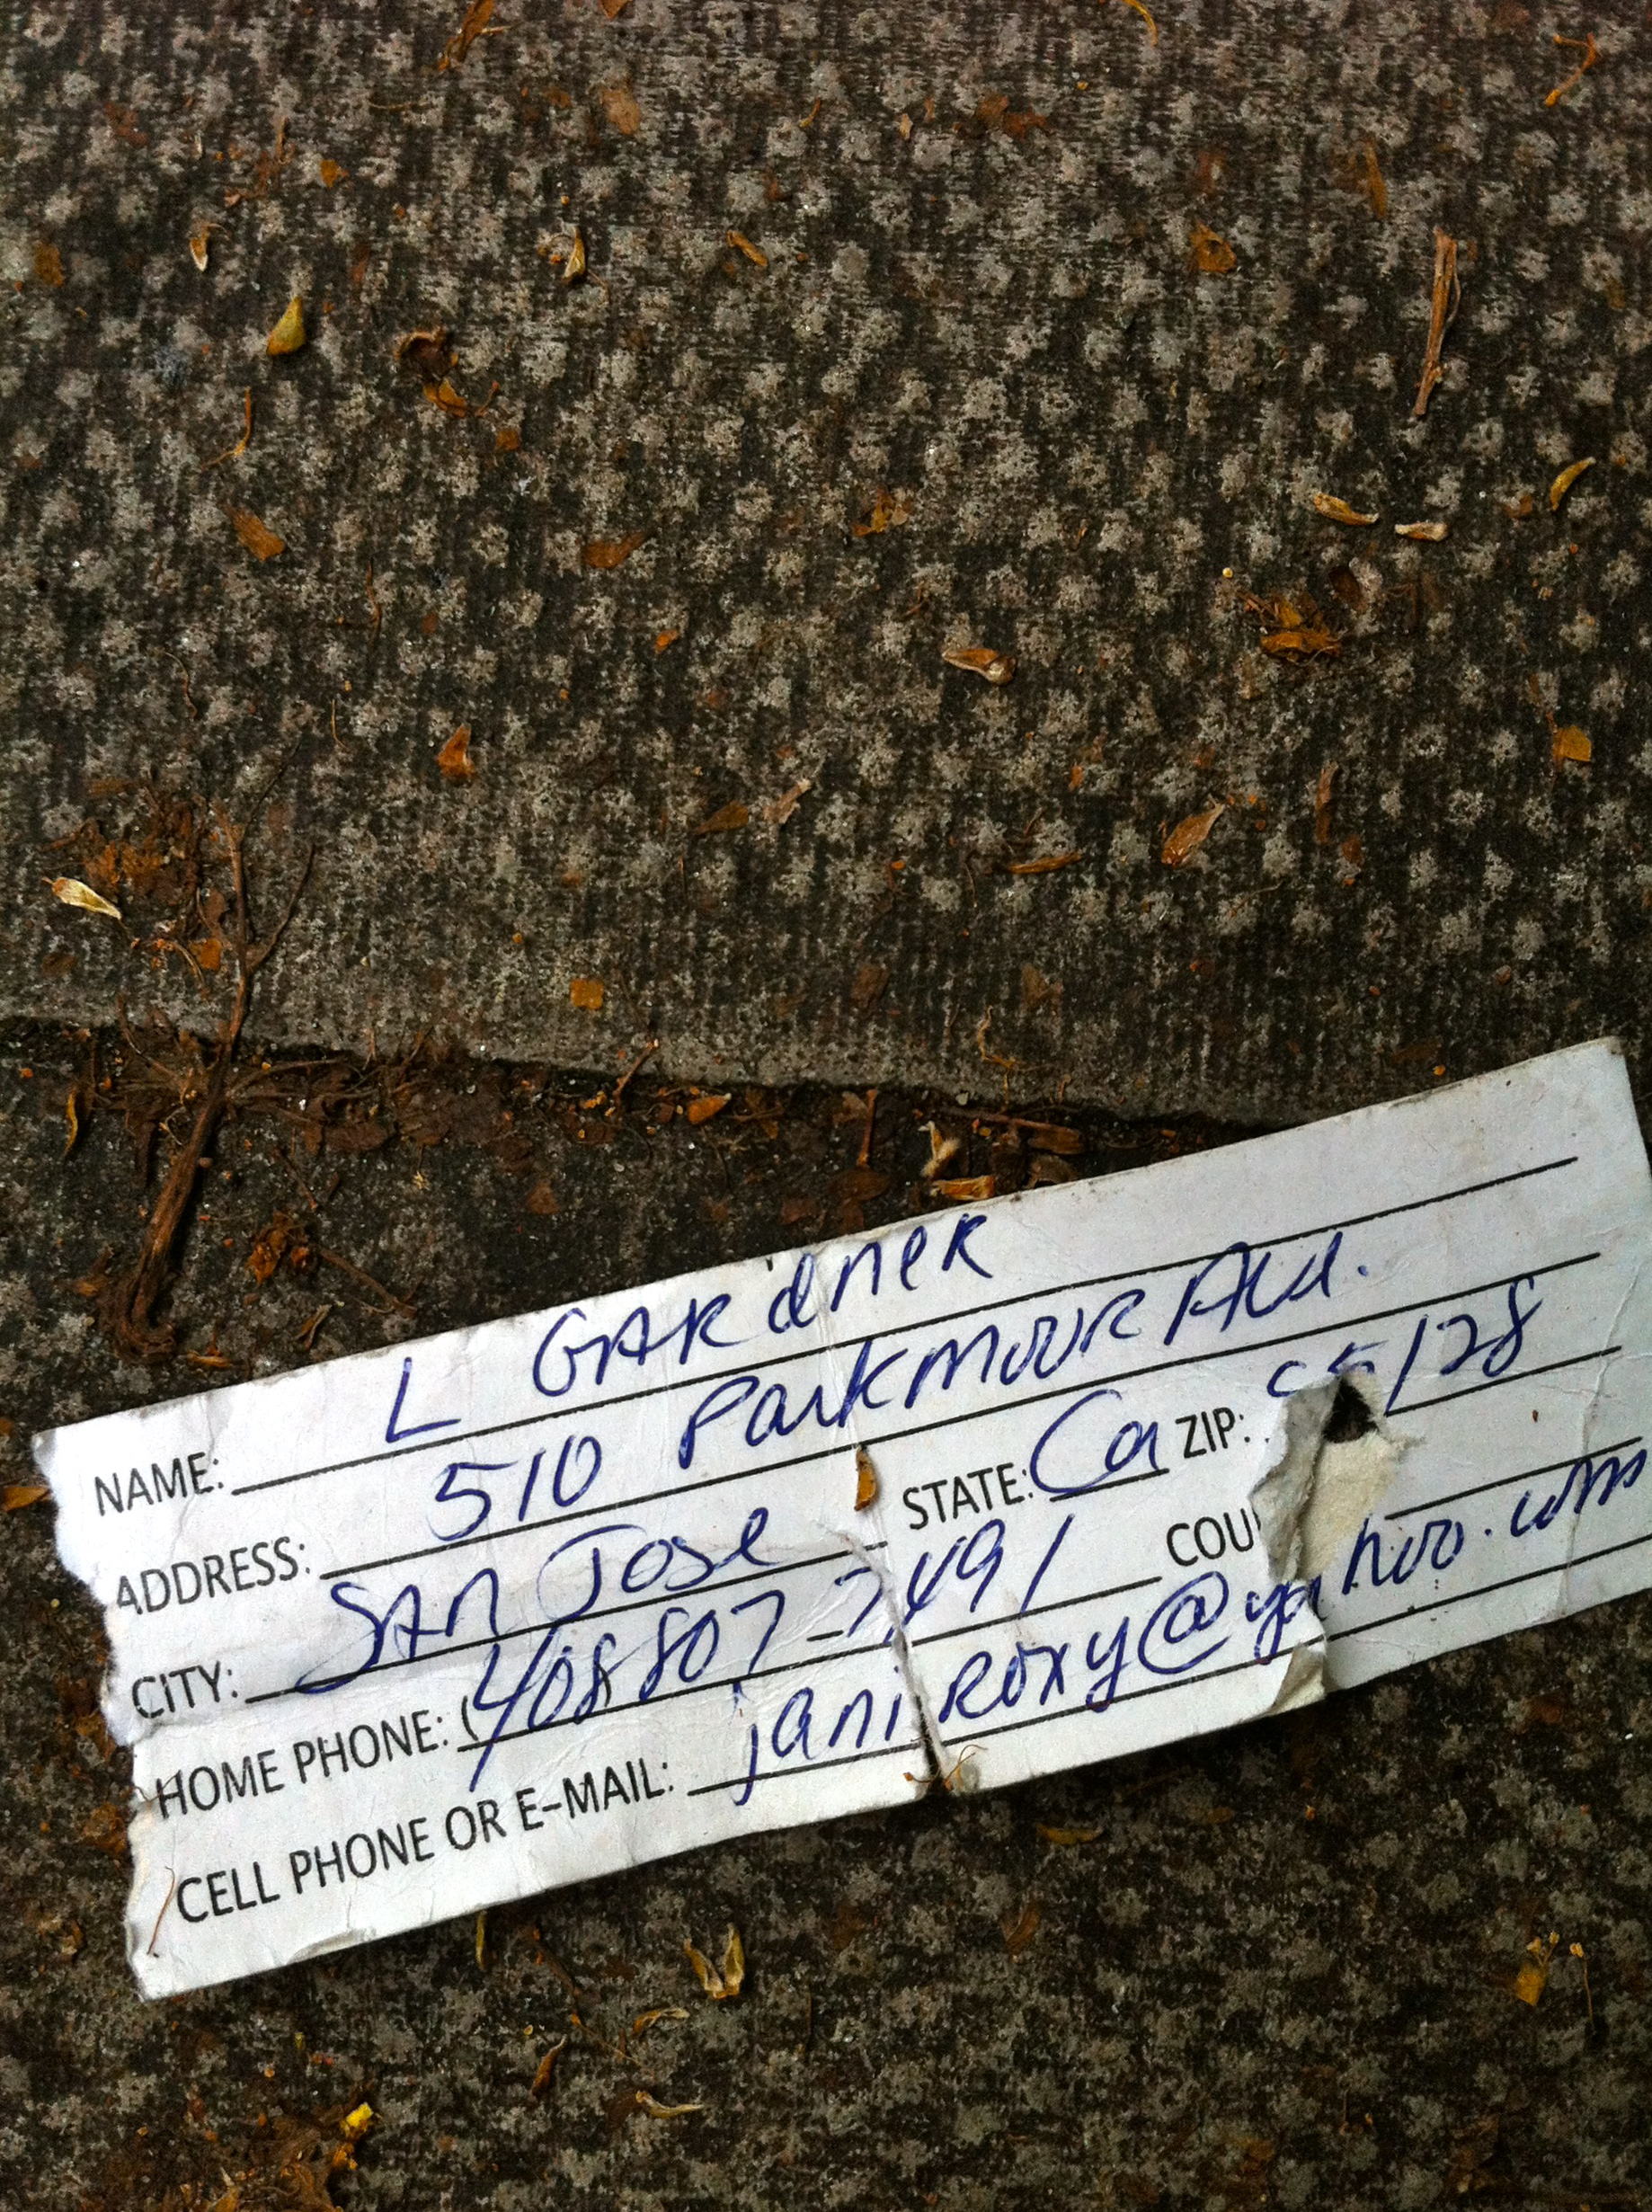 NAME: L GARdneR
ADDRESS: 510 Parkmoor Ave.
CITY: SAn Jose STATE: Ca ZIP: 95128
HOME PHONE: (408 807-7491 COU
CELL PHONE OR E-MAIL: janiroxy@yahoo.com